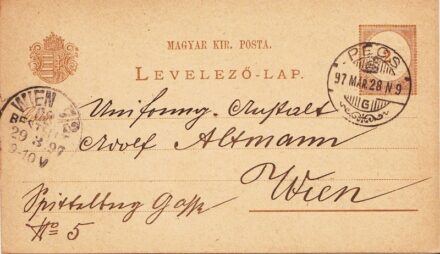 MAGYAR KIR. POSTA.
LEVELEZŐ-LAP.
PÉCS
97 MÁR. 28 N 9
G
WIEN
BESTELLT
29 3 97
9-10 V
Uniformg. Anstalt
Adolf Altmann
Wien
Spittelberg Gasse
No 5